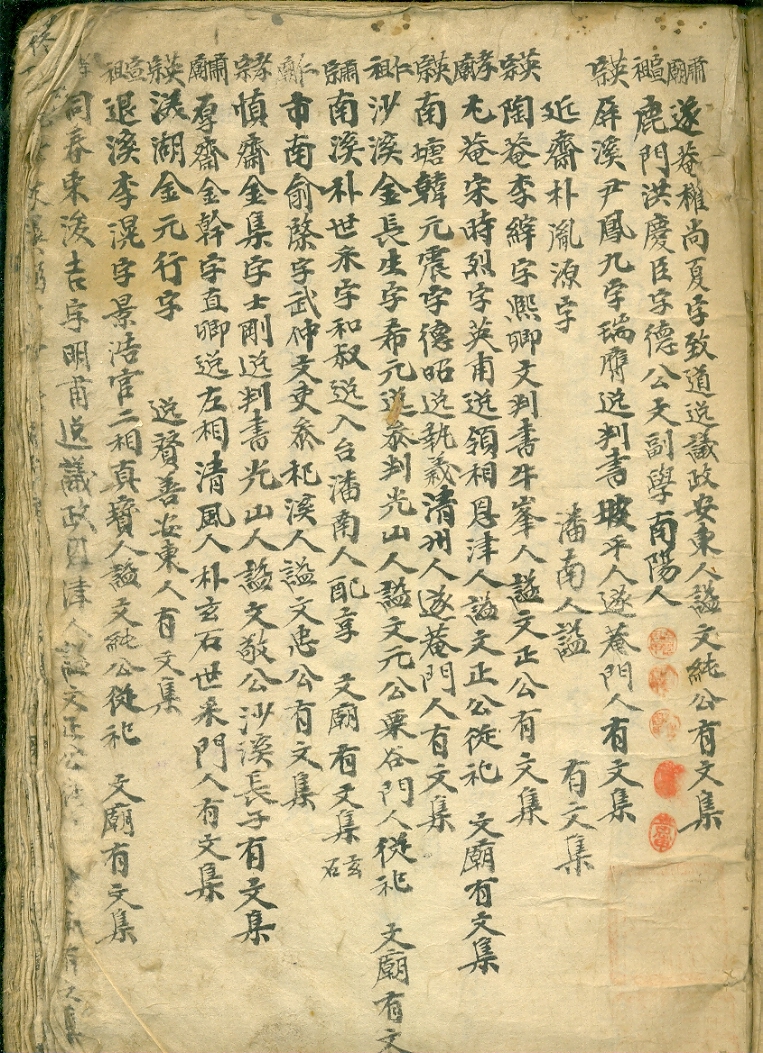 肅廟 遂菴權尚夏字致道逆議政安東人謚文純公有文集
宣祖 鹿門洪慶臣字德公文副學南陽人
英宗 屏溪尹鳳九字瑞膺逆判書坡平人遂菴門人有文集
近齋朴胤源字 潘南人謚 有文集
英宗 陶菴李縡字熙卿文判書牛峯人謚文正公有文集
孝廟 尤菴宋時烈字英甫逆領相恩津人謚文正公從祀 文廟有文集
英宗 南塘韓元震字德昭逆執義清州人遂菴門人有文集
仁祖 沙溪金長生字希元逆參判光山人謚文元公栗谷門人從祀 文廟有文
肅宗 南溪朴世采字和叔逆入台潘南人配享 文廟有文集 玄石
仁廟 市南俞棨字武仲文吏參杞溪人謚文忠公有文集
孝宗 慎齋金集字士剛逆判書光山人謚文敬公沙溪長子有文集
肅廟 厚齋金幹字直卿逆左相清風人朴玄石世采門人有文集
英宗 渼湖金元行字 逆贊善安東人有文集
宣祖 退溪李滉字景浩官二相真寶人謚文純公從祀 文廟有文集
同春宋浚吉字明甫逆議政恩津人謚文正公 有文集